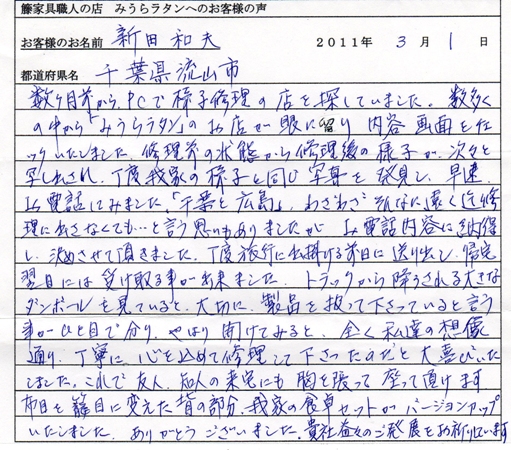 籐家具職人の店 みうらラタンへのお客様の声
お客様のお名前 新田 和夫 2011年 3月 1日
都道府県名 千葉県流山市
数ヶ月前からPCで椅子修理の店を探していました。数多く
の中から「みうらラタン」のお店が眼に留り内容画面を
いたしました。修理前の状態から修理後の様子が、次々と
写し出され、丁度我家の椅子と同じ写真を発見し、早速
お電話してみました。「千葉と広島」、わざわざそんなに遠くに修
理にださなくても…と言う思いもありましたがお電話内容に納得
し、決めさせて頂きました。丁度旅行に出掛ける前日に送り出し、帰宅
翌日には受け取る事が出来ました。トラックから降ろされる大きな
ダンボールを見ていると、大切に、製品を扱って下さっていると言う
事がひと目で分り、やはり開けてみると、全く私達の想像
通り、丁寧に、心を込めて修理して下さったのだと大喜びいた
しました。これで友人、知人の来宅にも胸を張って座って頂けます
布目を籐目に変えた背の部分、我家の食卓セットがバージョンアップ
いたしました。ありがとうございました。貴社益々のご発展をお祈りしています